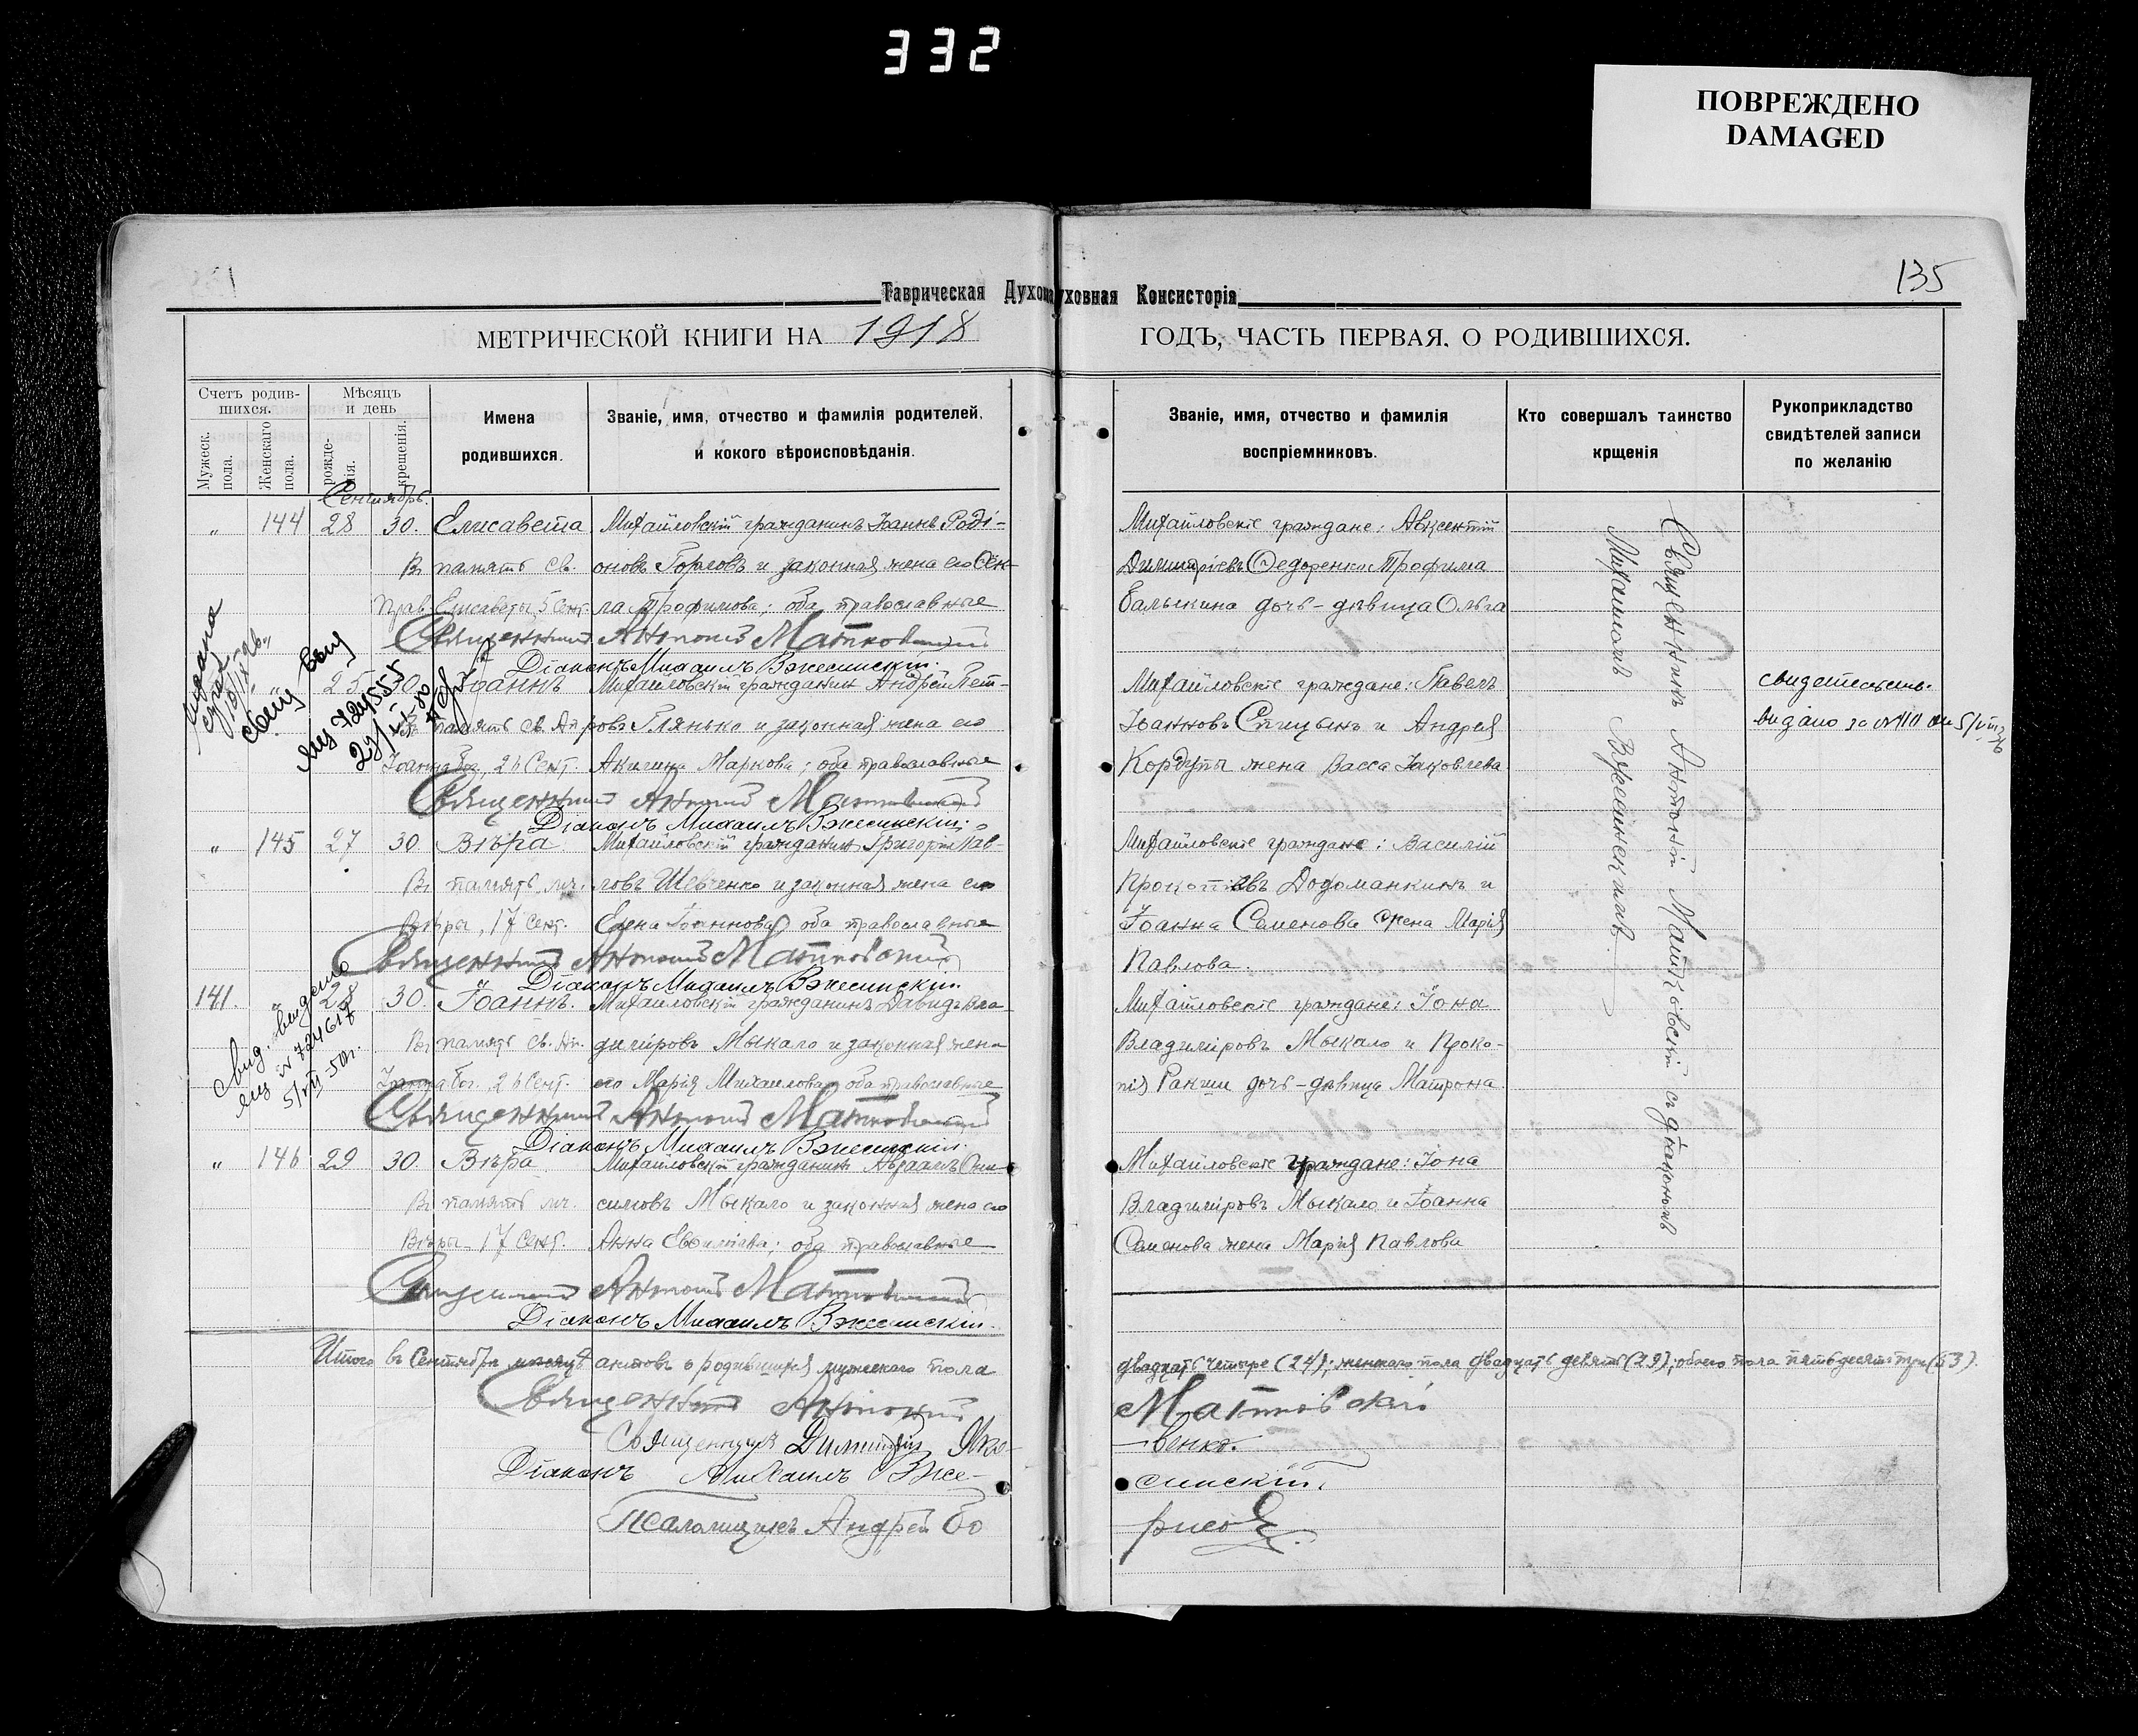 332
ПОВРЕЖДЕНО
DAMAGED
135
Таврическая Духовная Консисторія
МЕТРИЧЕСКОЙ КНИГИ НА 1918 ГОДЪ, ЧАСТЬ ПЕРВАЯ. О РОДИВШИХСЯ.
Счетъ родив-
шихся.
Мужеск. пола.
Женскаго пола.
Мѣсяцъ
и день
рожде-
нія.
крещенія.
Имена
родившихся.
Званіе, имя, отчество и фамилія родителей,
и кокого вѣроисповѣданія.
Званіе, имя, отчество и фамилія
воспріемниковъ.
Кто совершалъ таинство
крщенія
Рукоприкладство
свидѣтелей записи
по желанію
Сентябрь.
" 144 28 30. Елисавета Михайловскій гражданинъ Іоаннъ Роді-
Въ память св. оновъ и законная жена его Фек-
прав. Елисаветы, 5 Сент. ла Трофимова; оба православные
Священникъ Антоній Матковскій
Діаконъ Михаилъ Вжесинскій.
Михайловскіе граждане: Авксентій
Димитріевъ Федоренко и Трофима
дочь-дѣвица Ольга
Священникъ Антоній Матковскій съ діакономъ
Михаиломъ Вжесинскимъ.
" 25 30. Іоаннъ Михайловскій гражданинъ Андрей Пет-
Въ память св. Ап. ровъ Глянько и законная жена его
Іоанна Бог., 26 Сент. Акилина Маркова; оба православные
Священникъ Антоній Матковскій
Діаконъ Михаилъ Вжесинскій.
Михайловскіе граждане: Павелъ
Іоанновъ Спицынъ и Андрея
Кордупы жена Васса Іаковлева
" 145 27 30 Вѣра Михайловскій гражданинъ Григорій Пав-
Въ память мч. ловъ Шевченко и законная жена его
Вѣры, 17 Сент. Елена Іоаннова; оба православные
Священникъ Антоній Матковскій
Діаконъ Михаилъ Вжесинскій.
Михайловскіе граждане: Василій
Прокопіевъ Додоманкинъ и
Іоанна Семенова жена Марія
Павлова.
141. 28 30. Іоаннъ. Михайловскій гражданинъ Давидъ Вла-
Въ память Св. Ап. диміровъ Мыкало и законная жена
Іоанна Бог. 26 Сент. его Марія Михаилова; оба православные
Священникъ Антоній Матковскій
Діаконъ Михаилъ Вжесинскій.
Михайловскіе граждане: Іона
Владиміровъ Мыкало и Проко-
пія Ракши дочь-дѣвица Матрона
" 146 29 30. Вѣра Михайловскій гражданинъ Авраамъ Они-
Въ память мч. симовъ Мыкало и законная жена его
Вѣры, 17 Сент. Анна; оба православные
Священникъ Антоній Матковскій
Діаконъ Михаилъ Вжесинскій.
Михайловскіе граждане: Іона
Владиміровъ Мыкало и Іоанна
Семенова жена Марія Павлова
Итого въ Сентябрѣ мѣсяцѣ актовъ о родившихся мужескаго пола двадцать четыре (24); женскаго пола двадцать девять (29); обоего пола пятьдесятъ три (53).
Священникъ Антоній Матковскій
Священникъ Димитрій Яко-
венко.
Діаконъ Михаилъ Вже-
синскій.
Псаломщикъ Андрей Бо
рисов